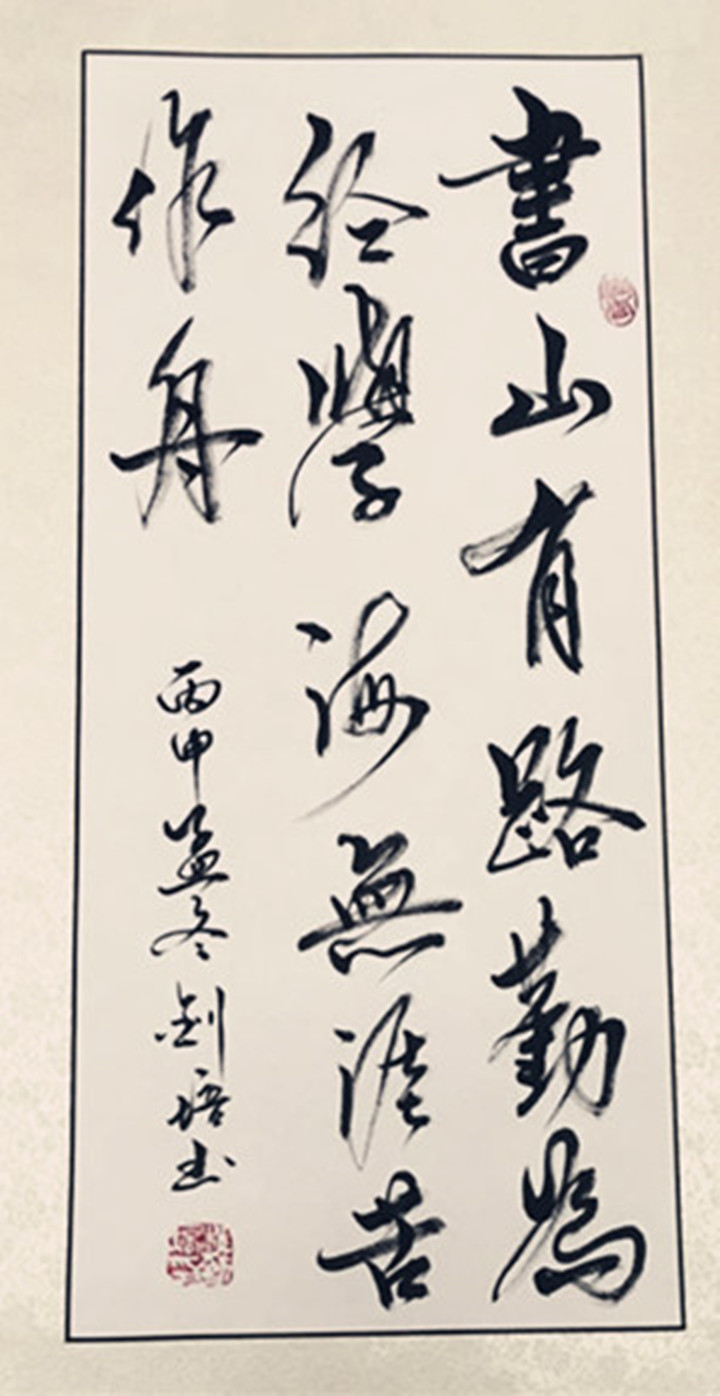 書山有路勤為
徑學海無涯苦
作舟
丙申孟冬劍培書